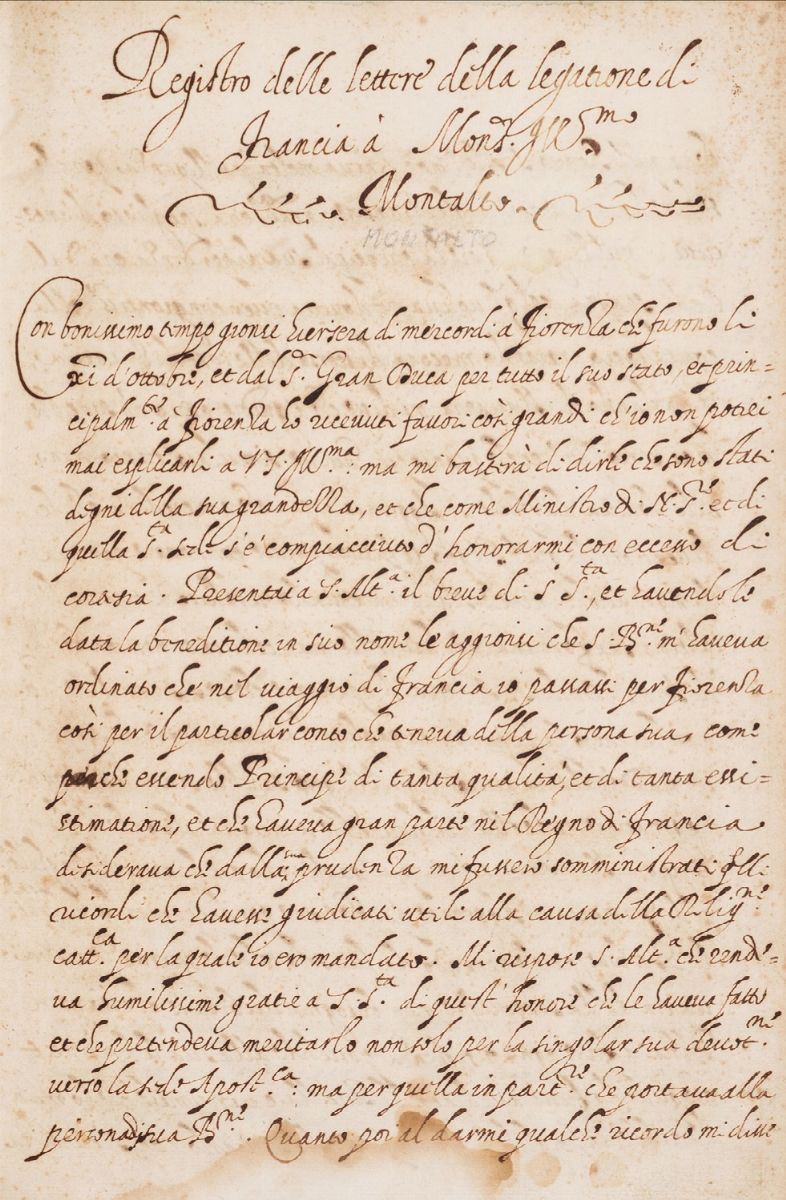 Registro delle lettere della legatione di
Francia à Mons.r Ill.mo
Montalto.
MONTALTO
Con bonissimo tempo gionsi hiersera di mercordi à Fiorenza che furono li
xi d'ottobre, et dal S.r Gran Duca per tutto il suo stato, et prin=
cipalm.te à Fiorenza ho ricevuti favori così grandi ch'io non potrei
mai esplicarli a VS. Ill.ma: ma mi basterà di dirle che sono stati
degni della sua grandezza, et che come Ministro di N. S.re et di
quella S.ta sede s'è compiacciuto d'honorarmi con eccesso di
cortesia. Presentai a S. Alt.a il breve di S. S.ta, et havendole
data la beneditione in suo nome le aggionsi che S. B.ne m'haveva
ordinato che nel viaggio di Francia io passassi per Fiorenza
così per il particolar conto che teneva della persona sua, come
perche essendo Principe di tanta qualità, et di tanta essi=
stimatione, et che haveva gran parte nel Regno di Francia
desiderava che dalla sua prudenza mi fussero somministrati q.lli
ricordi che havesse giudicati utili alla causa della Relig.ne
catt.ca per la quale io ero mandato. Mi rispose S. Alt.a che rende=
va humilissime gratie a S. S.ta di quest'honore che le haveva fatto
et che pretendeva meritarlo non solo per la singolar sua devot.ne
verso la sede Apost.ca: ma per quella in part.re che portava alla
persona di sua B.ne. Quanto poi al darmi qualche ricordo mi disse